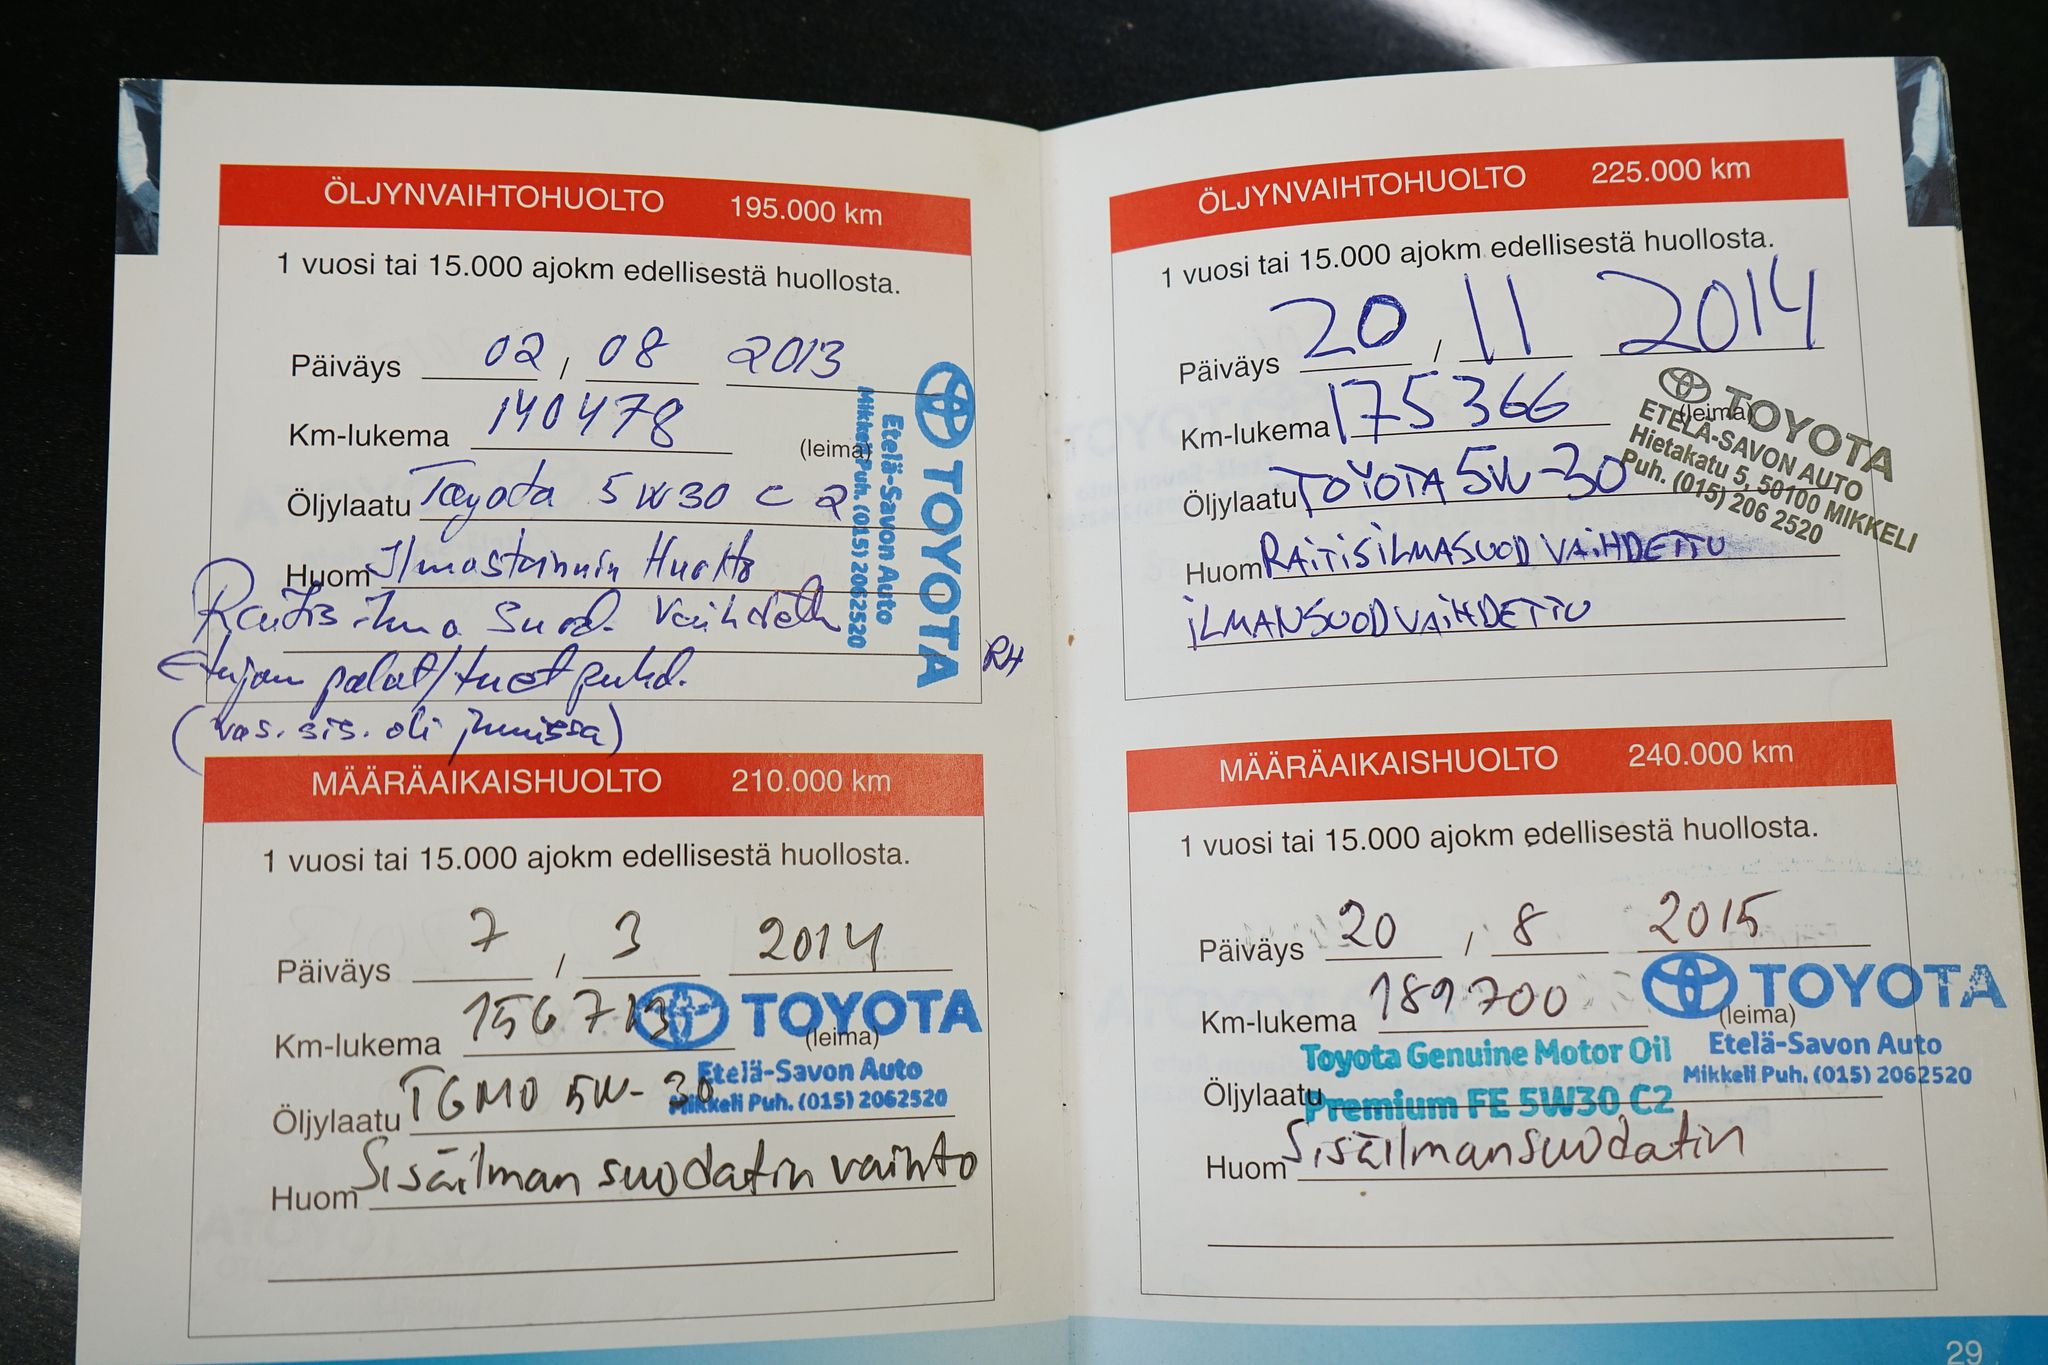 ÖLJYNVAIHTOHUOLTO 195.000 km
1 vuosi tai 15.000 ajokm edellisestä huollosta.
Päiväys 02 / 08 2013
Km-lukema 140478 (leima)
Öljylaatu Toyota 5W30 C2
Huom Ilmastoinnin Huolto
Raitis ilma Suod. Vaihdettu
Etujarru palat/tuet puhd.
(vas. sis. oli jumissa)
RH
TOYOTA
Etelä-Savon Auto
Mikkeli Puh. (015) 2062520
MÄÄRÄAIKAISHUOLTO 210.000 km
1 vuosi tai 15.000 ajokm edellisestä huollosta.
Päiväys 7 / 3 2014
Km-lukema 156713 (leima)
Öljylaatu TGMO 5W-30
Huom Sisäilman suodatin vaihto
TOYOTA
Etelä-Savon Auto
Mikkeli Puh. (015) 2062520
ÖLJYNVAIHTOHUOLTO 225.000 km
1 vuosi tai 15.000 ajokm edellisestä huollosta.
Päiväys 20 / 11 2014
Km-lukema 175366 (leima)
Öljylaatu TOYOTA 5W-30
Huom RAITISILMASUOD VAIHDETTU
ILMANSUOD VAIHDETTU
TOYOTA
ETELÄ-SAVON AUTO
Hietakatu 5, 50100 MIKKELI
Puh. (015) 206 2520
MÄÄRÄAIKAISHUOLTO 240.000 km
1 vuosi tai 15.000 ajokm edellisestä huollosta.
Päiväys 20 / 8 2015
Km-lukema 189700 (leima)
Öljylaatu Toyota Genuine Motor Oil
Premium FE 5W30 C2
Huom Sisäilmansuodatin
TOYOTA
Etelä-Savon Auto
Mikkeli Puh. (015) 2062520
29